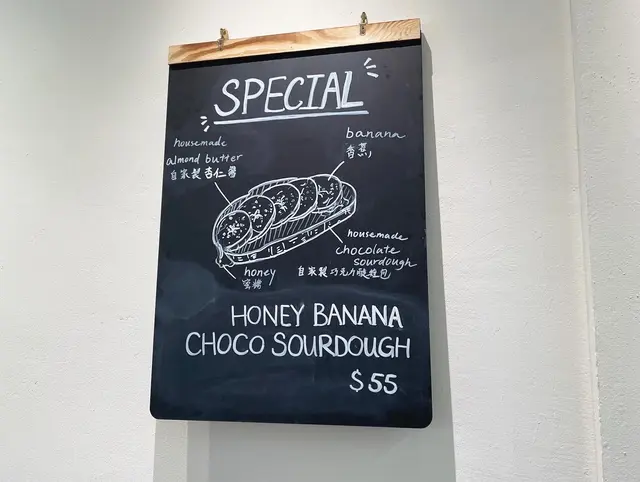 SPECIAL
housemade
almond butter
自家製杏仁醬
banana
香蕉
housemade
chocolate
sourdough
自家製巧克力酸種包
honey
蜜糖
HONEY BANANA
CHOCO SOURDOUGH
$55